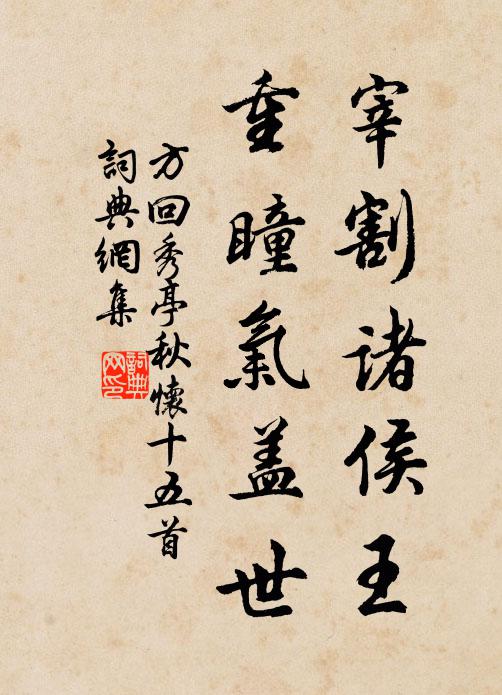 宰割諸侯王
重瞳氣盖世
方回秀亭秋懷十五首
詞典網集
詞典網印